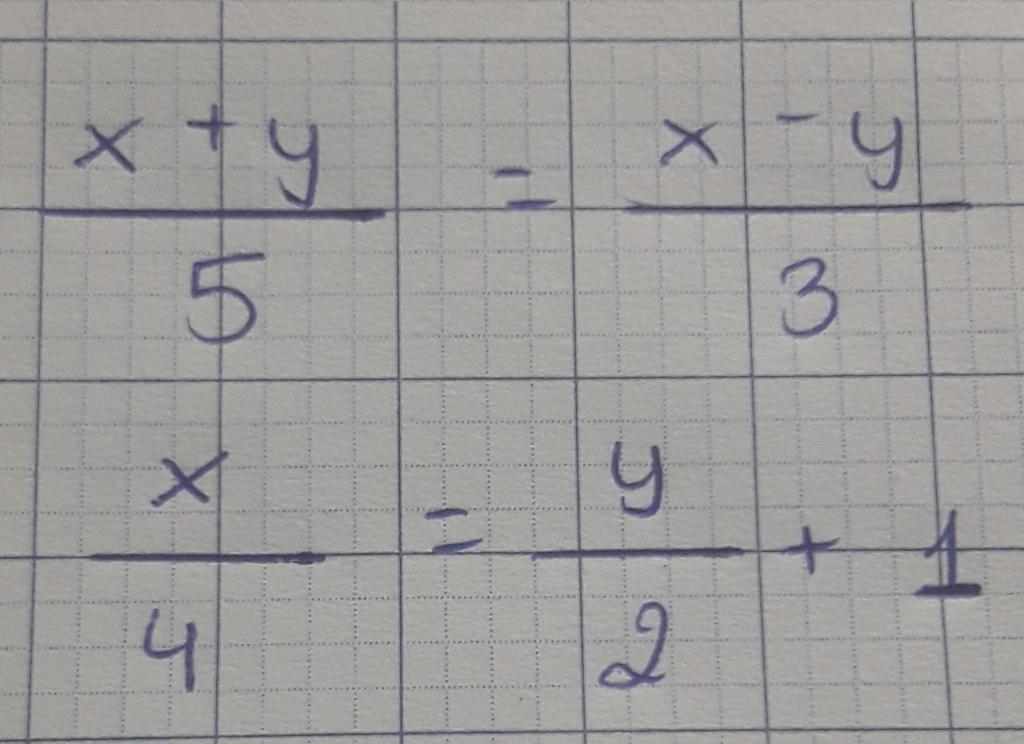 x + y / 5 = x - y / 3
x / 4 = y / 2 + 1